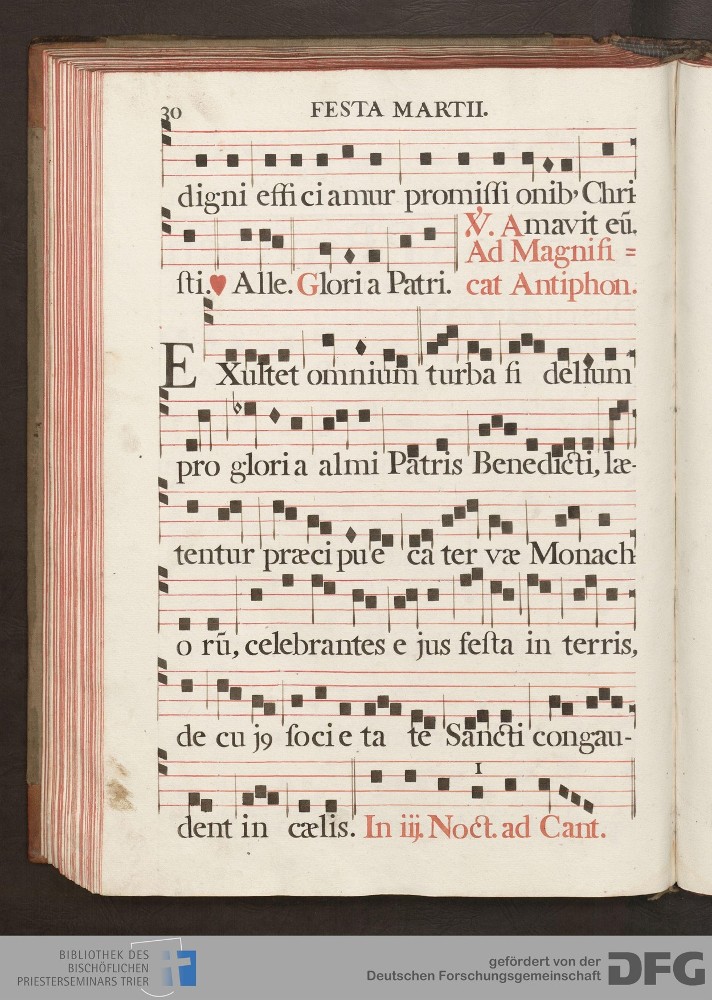 30 FESTA MARTII.
digni effi ci amur promiſſi onib, Chri
℣. Amavit eū.
Ad Magnifi =
ſti. ♥ Alle. Glori a Patri. cat Antiphon.
EXultet omnium turba fi delium
pro glori a almi Patris Benedicti, læ-
tentur præci pu e ca ter væ Monach
o rū, celebrantes e jus feſta in terris,
de cu j9 ſoci e ta te Sancti congau-
1
dent in cælis. In iij. Noct. ad Cant.
BIBLIOTHEK DES
BISCHÖFLICHEN
PRIESTERSEMINARS TRIER
gefördert von der
Deutschen Forschungsgemeinschaft
DFG